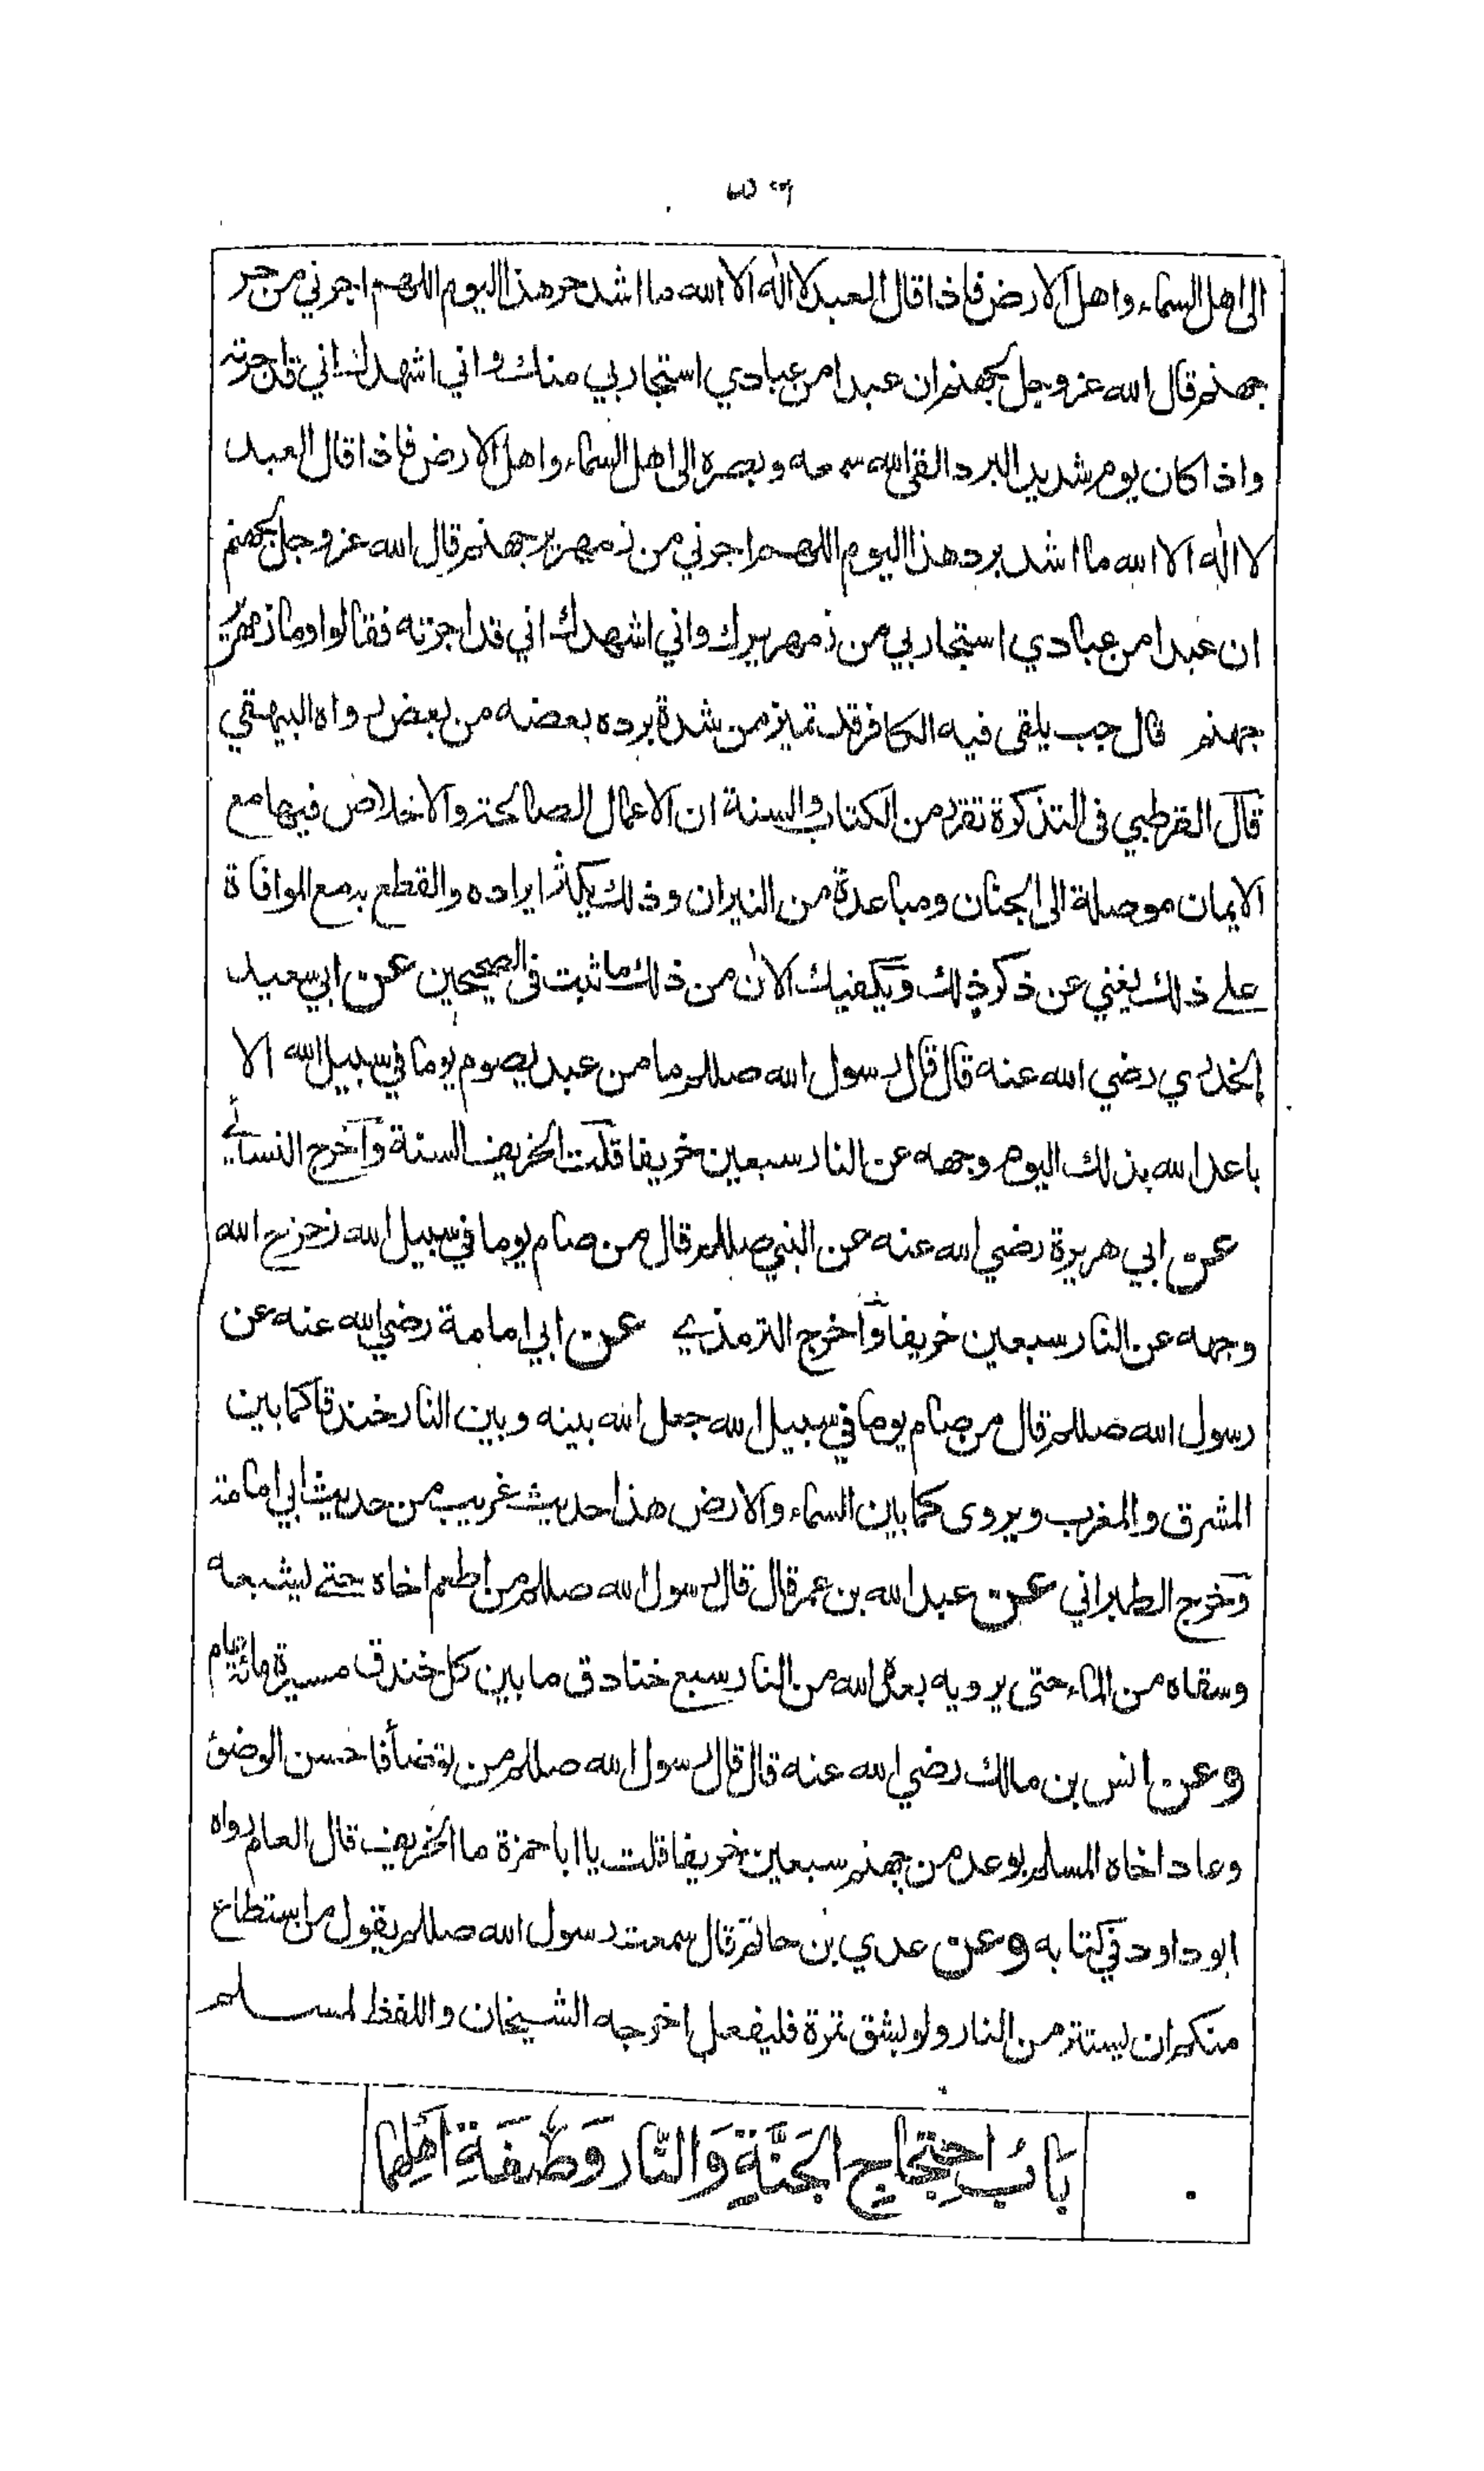 الى اهل السماء واهل الارض فاذا قال العبد لا اله الا الله ما اشد حر هذا اليوم اللهم اجرني من حر
جهنم قال الله عز وجل لجهنم ان عبدا من عبادي استجار بي منك واني اشهدك اني قد اجرته
واذا كان يوم شديد البرد القى الله سمعه وبصره الى اهل السماء واهل الارض فاذا قال العبد
لا اله الا الله ما اشد برد هذا اليوم اللهم اجرني من زمهرير جهنم قال الله عز وجل لجهنم
ان عبدا من عبادي استجار بي من زمهريرك واني اشهدك اني قد اجرته فقالوا وما زمهرير
جهنم قال جب يلقى فيه الكافر قد تميز من شدة برده بعضه من بعض رواه البيهقي
قال القرطبي فى التذكرة تقرر من الكتاب والسنة ان الاعمال الصالحة والاخلاص فيها مع
الايمان موصلة الى الجنان ومباعدة من النيران وذلك يكثر ايراده والقطع به مع الموافاة
على ذلك يغني عن ذكر ذلك ويكفيك الان من ذلك ما ثبت فى الصحيحين عن ابي سعيد
الخدري رضي الله عنه قال قال رسول الله صللم ما من عبد يصوم يوما في سبيل الله الا
باعد الله بذلك اليوم وجهه عن النار سبعين خريفا قلت الخريف السنة وآخرج النسائے
عن ابي هريرة رضي الله عنه عن النبي صللم قال من صام يوما في سبيل الله زحزح الله
وجهه عن النار سبعين خريفا وآخرج الترمذے عن ابي امامة رضي الله عنه عن
رسول الله صللم قال من صام يوما في سبيل الله جعل الله بينه وبين النار خندقا كما بين
المشرق والمغرب ويروى كما بين السماء والارض هذا حديث غريب من حديث ابي امامة
وخرج الطبراني عن عبد الله بن عمر قال قال رسول الله صللم من اطعم اخاه حتے ليشبعه
وسقاه من الماء حتى يرويه بعده الله من النار سبع خنادق ما بين كل خندق مسيرة مائة عام
وعن انس بن مالك رضي الله عنه قال قال رسول الله صللم من توضأ فاحسن الوضؤ
وعاد اخاه المسلم بوعد من جهنم سبعين خريفا قلت يا ابا حمزة ما الخريف قال العام رواه
ابو داود في كتابه وعن عدي بن حاتم قال سمعت رسول الله صللم يقول من استطاع
منكم ان يستتر من النار ولو بشق تمرة فليفعل اخرجه الشيخان واللفظ لمسلم
بَابُ احْتِجَاجِ الجَنَّةِ وَالنَّارِ وَصِفَةِ اَهْلِهِمَا